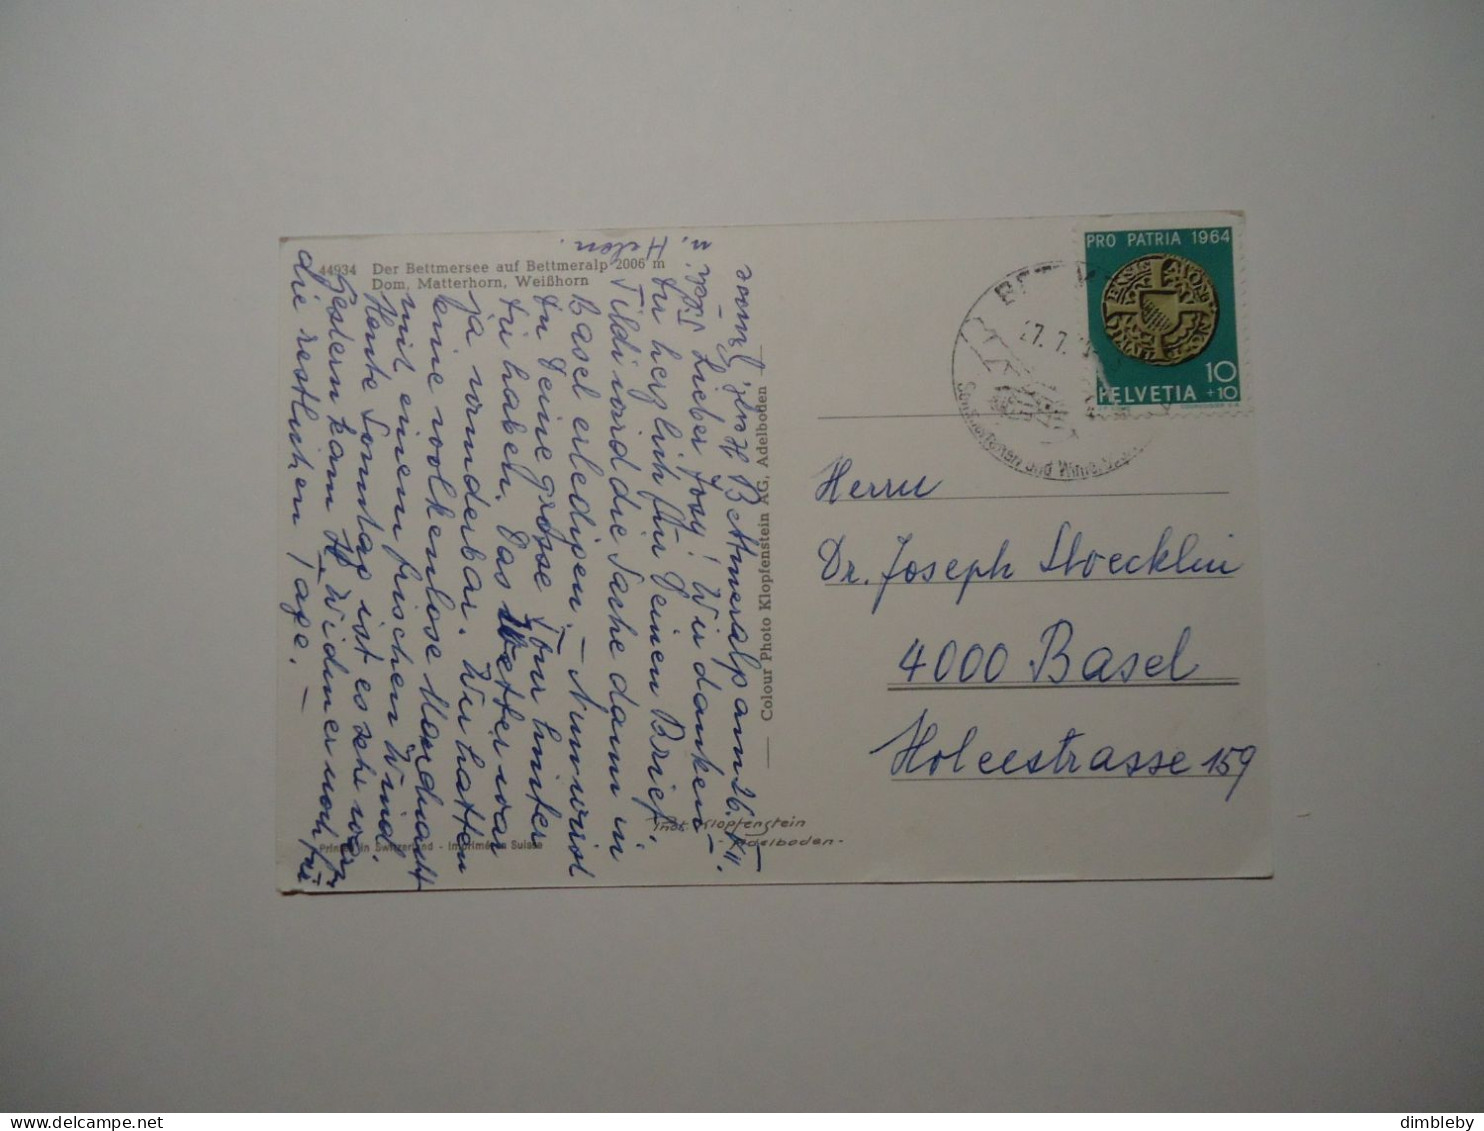 44934 Der Bettmersee auf Bettmeralp 2006 m
Dom, Matterhorn, Weißhorn
Bettmeralp am 26. VII.
Lieber Josy! Wir danken
Dir herzlich für Deinen Brief.
Tildi wird die Sache dann in
Basel erledigen. – Nun wirst
Du Deine grosse Tour hinter
Dir haben. Das Wetter war
ja wunderbar. Wir hatten
eine wolkenlose Mondnacht
mit einem frischen Wind.
Heute Sonntag ist es sehr warm.
Gestern kam H. Widmer noch für
die restlichen Tage. –
Herzl. Grüsse
u. Helen.
Colour Photo Klopfenstein AG, Adelboden
Phot. Klopfenstein
- Adelboden -
Printed in Switzerland - Imprimé en Suisse
PRO PATRIA 1964
10
+10
HELVETIA
27. 7.
Herrn
Dr. Joseph Stoecklin
4000 Basel
Holeestrasse 159
delcampe.net
dimbleby